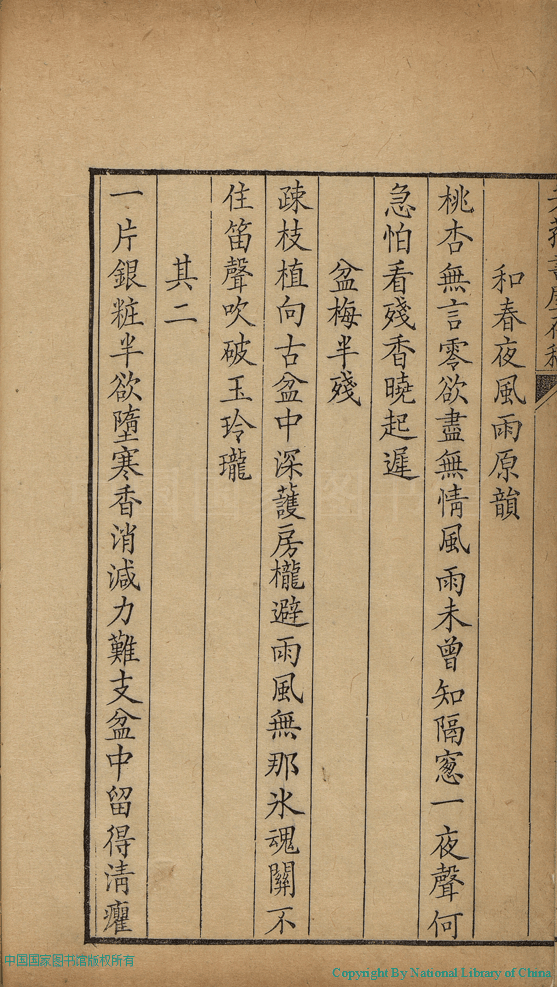 和春夜風雨原韻
桃杏無言零欲盡無情風雨未曾知隔窻一夜聲何
急怕看殘香曉起遲
盆梅半殘
疎枝植向古盆中深護房櫳避雨風無那氷魂關不
住笛聲吹破玉玲瓏
其二
一片銀粧半欲墮寒香消減力難支盆中留得清癯
中国国家图书馆版权所有
Copyright By National Library of China